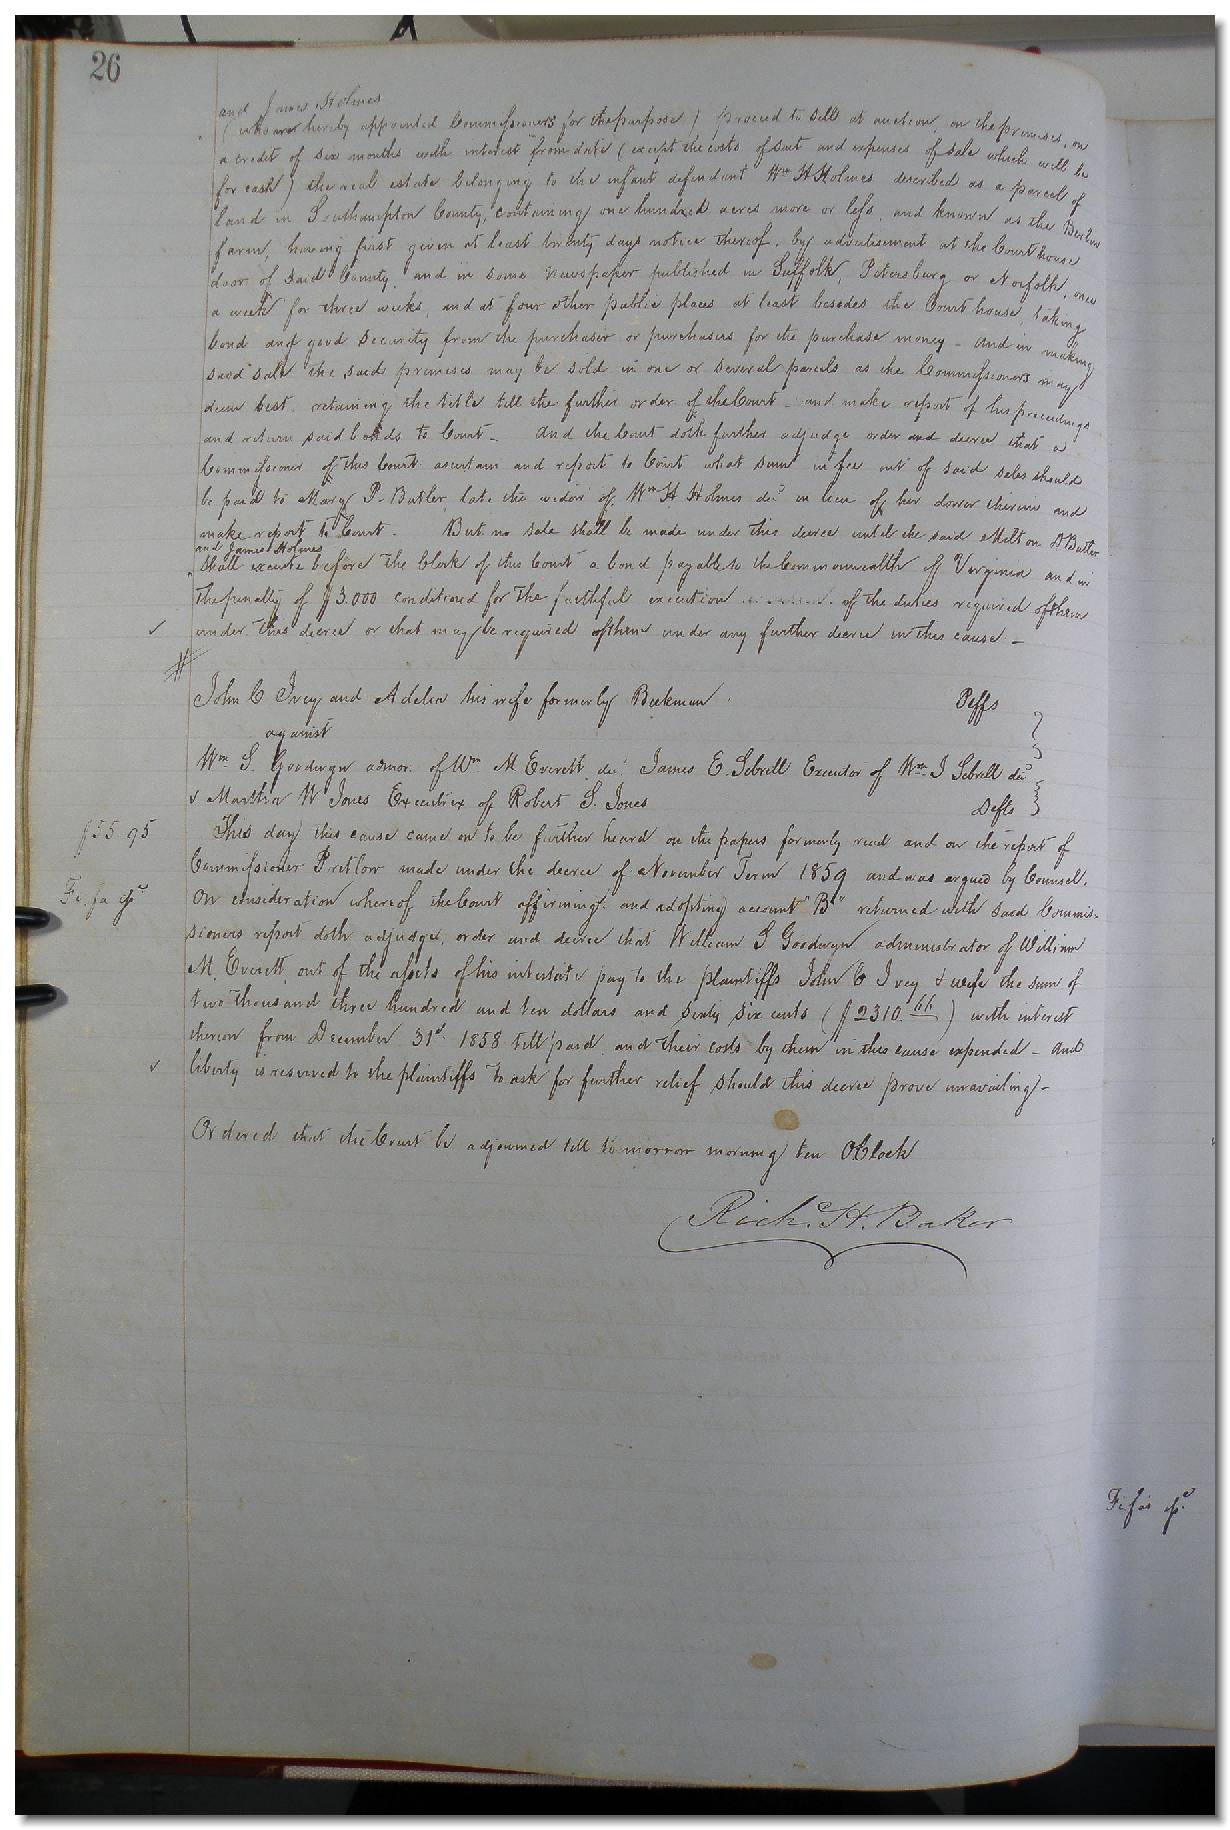 26
and James Holmes
( who are hereby appointed Commissioners for the purpose ) proceed to sell at auction, on the premises, on
a credit of six months with interest from date ( except the costs of suit and expenses of sale which will be
for cash ) the real estate belonging to the infant defendant Wm H Holmes described as a parcel of
land in Southampton County, containing one hundred acres more or less, and known as the
farm, having first given at least twenty days notice thereof, by advertisement at the Court house
door of said County, and in some newspaper published in Suffolk, Petersburg or Norfolk, once
a week for three weeks, and at four other public places at least besides the Court house, taking
bond and good security from the purchaser or purchasers for the purchase money - And in making
said sale the said premises may be sold in one or several parcels as the Commissioners may
deem best, retaining the title till the further order of the Court - and make report of his proceedings
and return said bonds to Court - And the Court doth further adjudge order and decree that a
Commissioner of this Court ascertain and report to Court what sum in fee out of said sales should
be paid to Mary P. Butler late the widow of Wm H Holmes decd in lieu of her dower therein and
make report to Court. But no sale shall be made under this decree until the said Melton Butler
and James Holmes
shall execute before the Clerk of this Court a bond payable to the Commonwealth of Virginia and in
the penalty of $3.000 conditioned for the faithful execution of the duties required of them
under this decree or that may be required of them under any further decree in this cause -
John C Ivey and Adelia his wife formerly Beekman Plffs
against
Wm S. Goodwyn admor. of Wm M Everett decd James E. Sebrell Executor of Wm J Sebrell decd
& Martha W Jones Executrix of Robert S. Jones Defts
$55 95
This day this cause came on to be further heard on the papers formerly read and on the report of
Commissioner Pretlow made under the decree of November Term 1859 and was argued by Counsel.
Fi. fa
On consideration whereof the Court affirming and adopting account "B" returned with said Commis-
sioners report doth adjudge, order and decree that William S Goodwyn administrator of William
M. Everett out of the assets of his intestate pay to the plaintiffs John C Ivey & wife the sum of
two thousand three hundred and ten dollars and sixty six cents ( $2310 66 ) with interest
thereon from December 31st 1858 till paid and their costs by them in this cause expended - And
liberty is reserved to the plaintiffs to ask for further relief should this decree prove unavailing -
Ordered that the Court be adjourned till tomorrow morning ten OClock
Richd. H. Baker
Fi fa